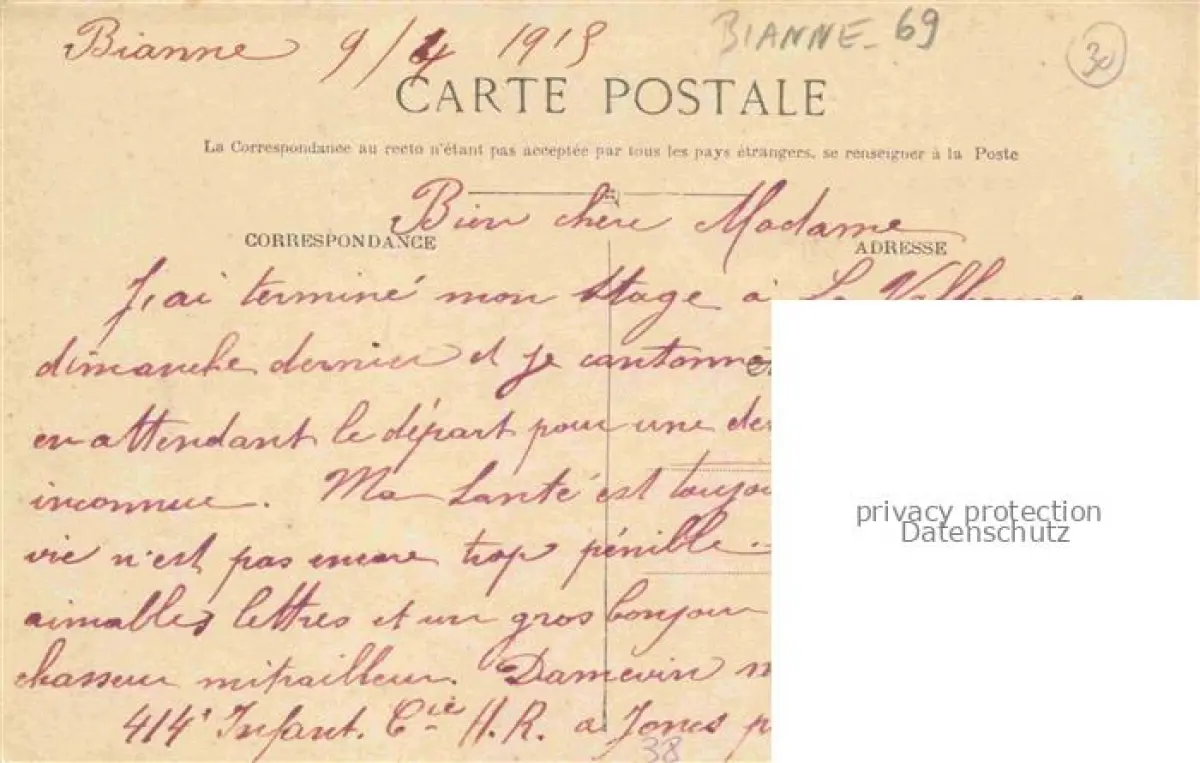 Bianne 9/4 1915
BIANNE - 69
30
CARTE POSTALE
La Correspondance au recto n'étant pas acceptée par tous les pays étrangers, se renseigner à la Poste
Bien chère Madame
CORRESPONDANCE
ADRESSE
J'ai terminé mon stage à La Valbonne
dimanche dernier et je cantonne
en attendant le départ pour une
inconnue. Ma santé est
vie n'est pas encore trop pénible
aimables lettres et un gros bonjour
chasseur mitrailleur. Damevin
414e Infant. Cie H.R. à Jons
38
privacy protection
Datenschutz